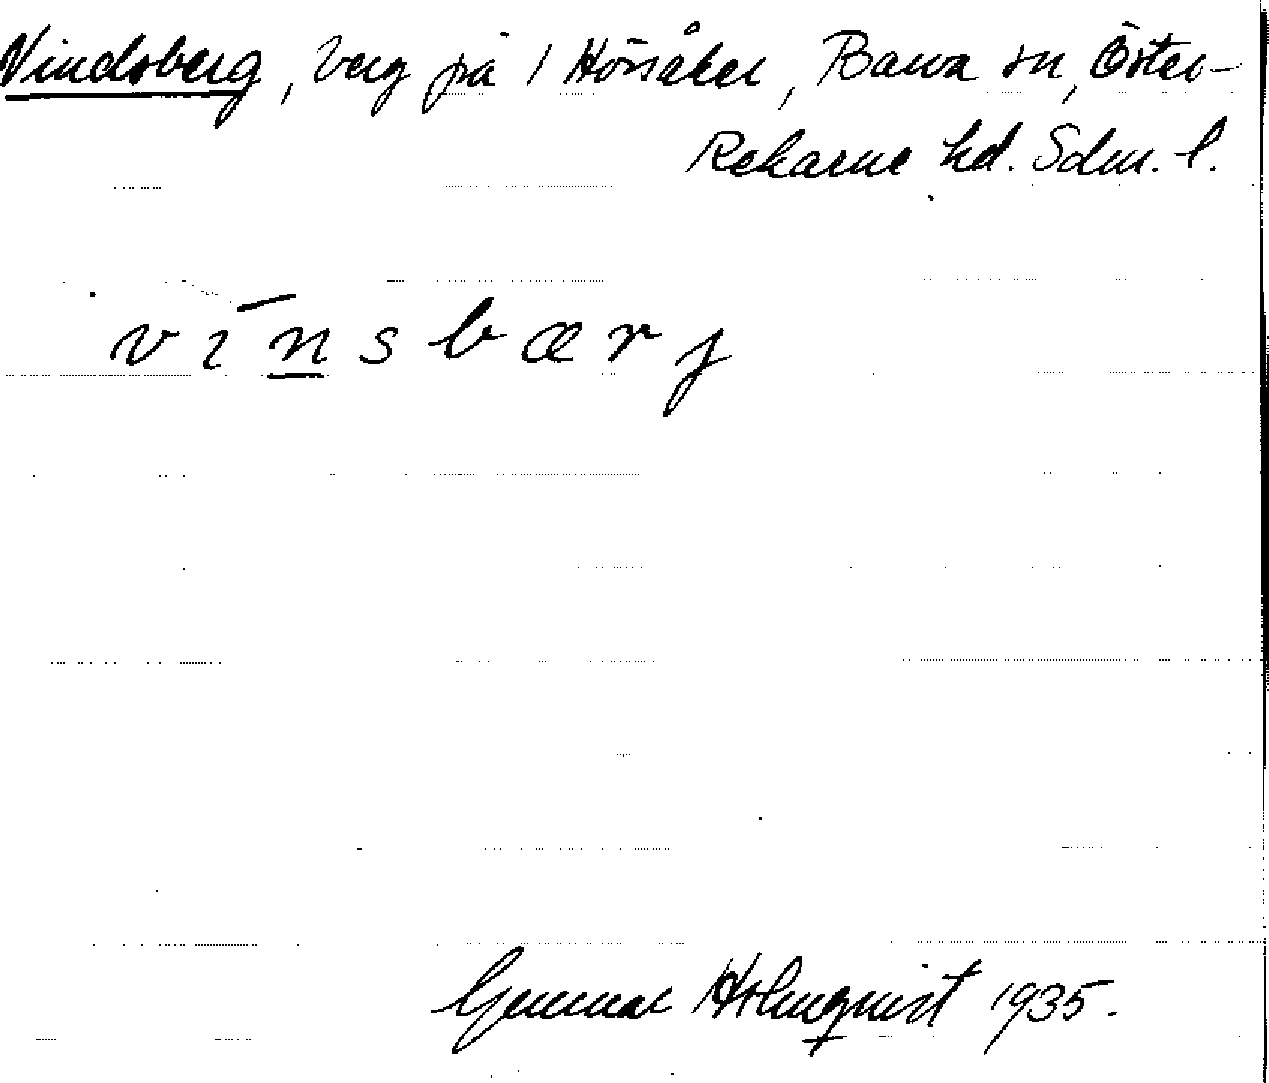 Vindsberg, berg på 1 Hörsåker, Barva sn, Öster-
Rekarne hd. Sdm. l.
vīn̲sbærj
Gunnar Holmquist 1935.